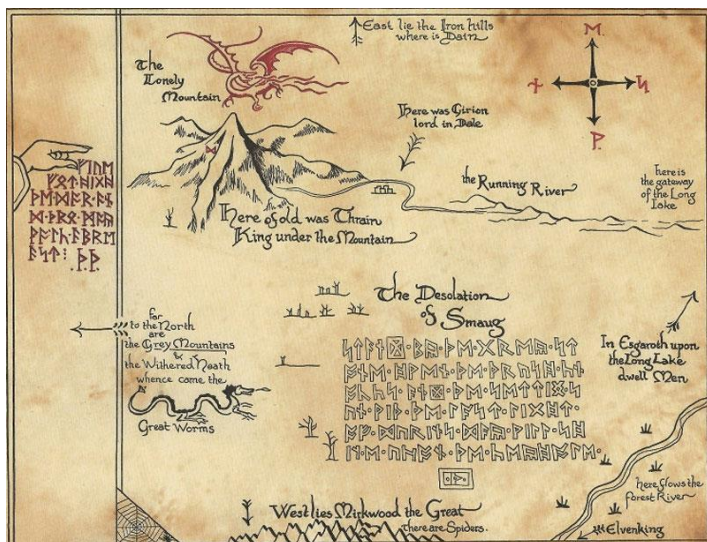 East lie the Iron hills
where is Dain
ᛖ
ᚾ
ᛋ
ᚹ
The
Lonely
Mountain
There was Girion
lord in Dale
the Running River
here is
the gateway
of the Long
Lake
Here of old was Thrain
King under the Mountain
ᚠᛁᚢᛖ
ᚻᛁᚷᚻ
ᚦᛖ·ᛞᚩᚱ·ᚪᚾ
ᛞ
ᚹᚪᛚᚳ·ᚪᛒᚱᛖ
ᚪᛋᛏ: ᚦ.ᚦ.
far
to the North
are
the Grey Mountains
&
the Withered Heath
whence came the
Great Worms
The Desolation
of Smaug
ᛋᛏᚪᚾᛞ·ᛒᚣ·ᚦᛖ·ᚷᚱᛖᚣ·ᛋᛏ
ᚩᚾᛖ·ᚻᚹᛖᚾ·ᚦᛖ·ᚦᚱᚢᛋᚻ·ᚳᚾ
ᚩᚳᛋ·ᚪᚾᛞ·ᚦᛖ·ᛋᛖᛏᛏᛁᛝ·ᛋ
ᚢᚾ·ᚹᛁᚦ·ᚦᛖ·ᛚᚪᛋᛏ·ᛚᛁᚷᚻᛏ·
ᚩᚠ·ᛞᚢᚱᛁᚾᛋ·ᛞᚪᚣ·ᚹᛁᛚᛚ·ᛋᚻ
ᛁᚾᛖ·ᚢᛈᚩᚾ·ᚦᛖ·ᚳᛖᚣᚻᚩᛚᛖ·
·ᚦ·
In Esgaroth upon
the Long Lake
dwell Men
here flows the
Forest River
West lies Mirkwood the Great
there are Spiders.
Elvenking